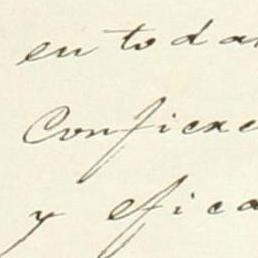 en todas
Confiere
y efica